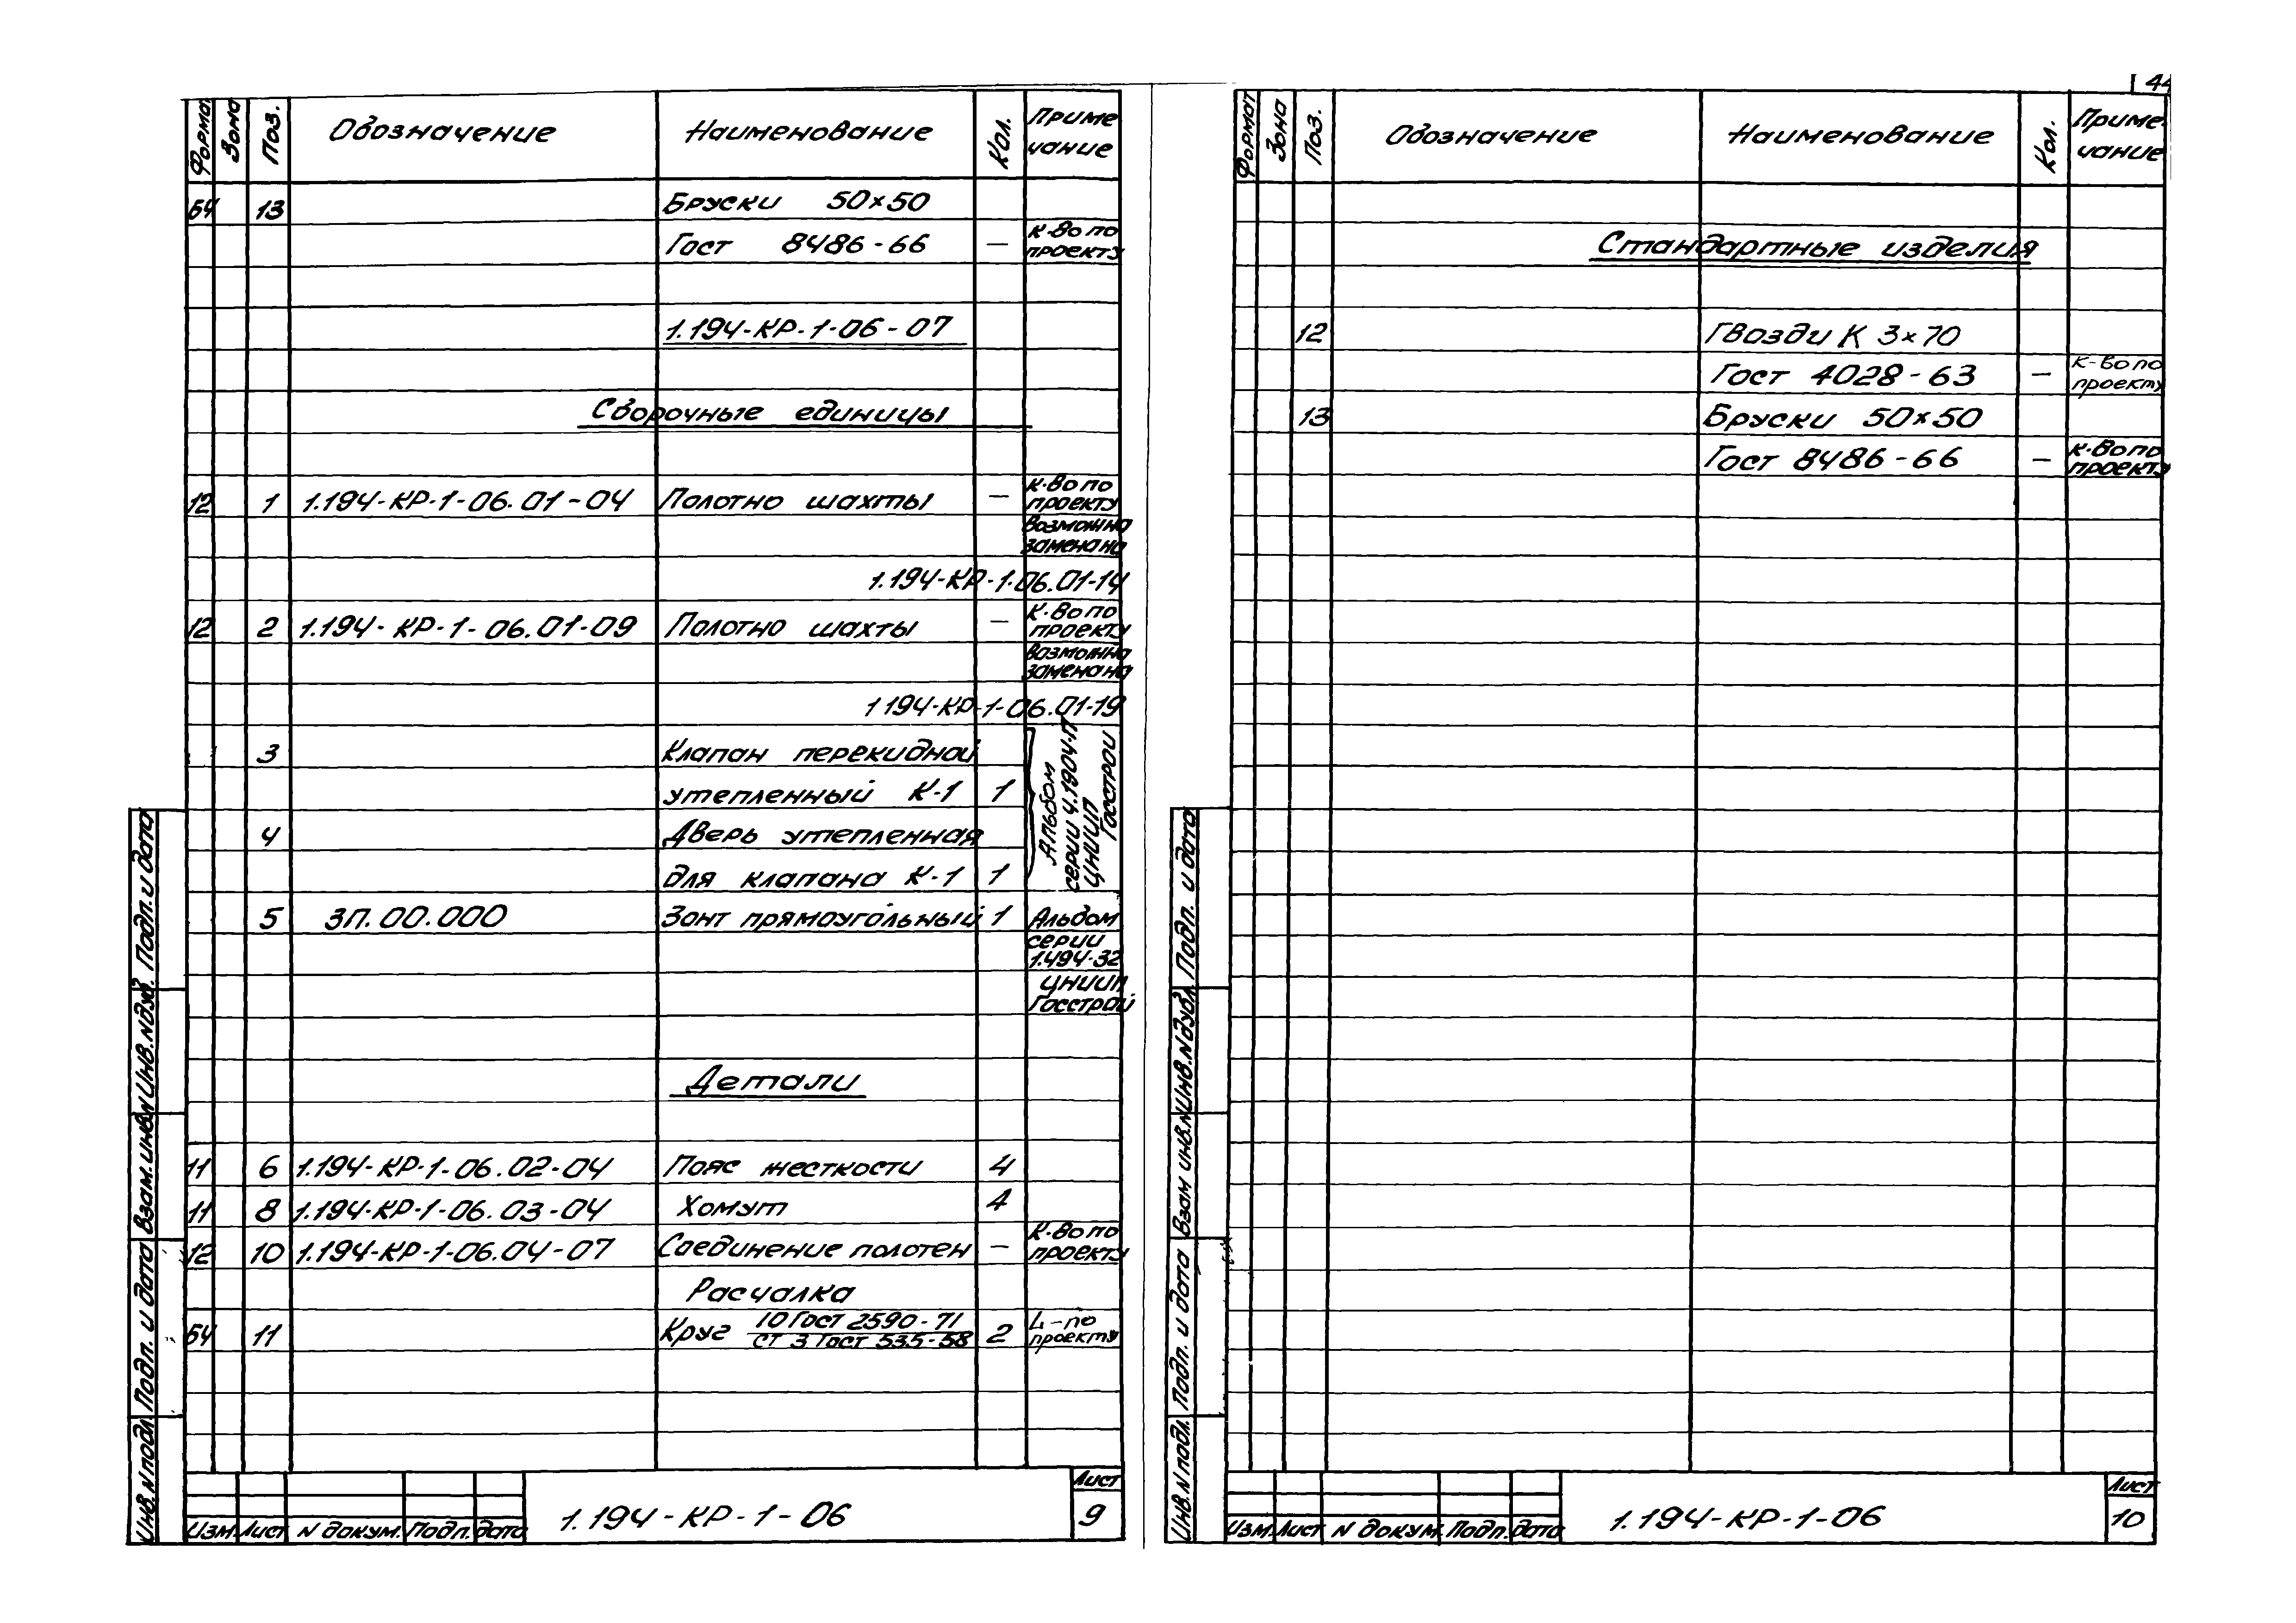 44
Формат Зона Поз. Обозначение Наименование Кол. Приме
чание
БЧ 13 Бруски 50×50
Гост 8486-66 — к-во по
проекту
1.194-КР-1-06-07
Сборочные единицы
12 1 1.194-КР-1-06.01-04 Полотно шахты — к-во по
проекту
возможна
замена на
1.194-КР-1-06.01-14
12 2 1.194-КР-1-06.01-09 Полотно шахты — к-во по
проекту
возможна
замена на
1 194-КР-1-06.01-19
3 Клапан перекидной
утепленный К-1 1
4 Дверь утепленная
для клапана К-1 1
Альбом
серии 4.1904-П
ЦНИИП
Госстрой
5 ЗП.00.000 Зонт прямоугольный 1 Альбом
серии
1.494-32
ЦНИИП
Госстрой
Детали
11 6 1.194-КР-1-06.02-04 Пояс жесткости 4
11 8 1.194-КР-1-06.03-04 Хомут 4
12 10 1.194-КР-1-06.04-07 Соединение полотен — к-во по
проекту
Расчалка
БЧ 11 Круг 10 Гост 2590-71
Ст 3 Гост 535-58 2 L-по
проекту
Инв. N подл. Подп. и дата Взам. инв. N Инв. N дуб. Подп. и дата
Изм. Лист N докум. Подп. дата
1.194-КР-1-06
Лист
9
Формат Зона Поз. Обозначение Наименование Кол. Приме-
чание
Стандартные изделия
12 Гвозди К 3×70
Гост 4028-63 — к-во по
проекту
13 Бруски 50×50
Гост 8486-66 — к-во по
проекту
Инв. N подл. Подп. и дата Взам инв. N Инв. N дубл. Подп. и дата
Изм. Лист N докум. Подп. дата
1.194-КР-1-06
Лист
10